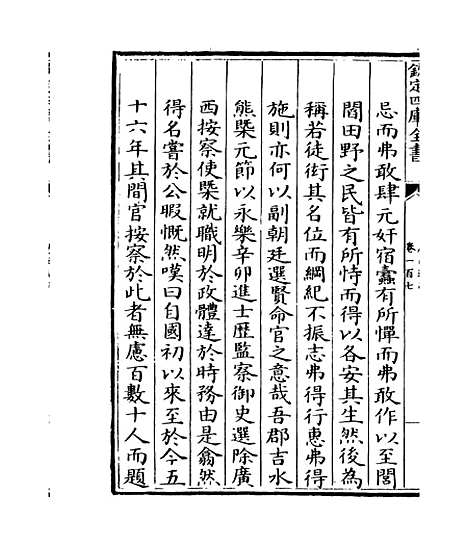 欽定四庫全書
卷一百七
忌而弗敢肆元奸宿蠹有所憚而弗敢作以至閭
閻田野之民皆有所恃而得以各安其生然後為
稱若徒衒其名位而綱紀不振志弗得行惠弗得
施則亦何以副朝廷選賢命官之意哉吾郡吉水
熊槩元節以永樂辛卯進士歷監察御史選除廣
西按察使槩就職明於政體達於時務由是翕然
得名嘗於公暇慨然嘆曰自國初以來至於今五
十六年其間官按察於此者無慮百數十人而題